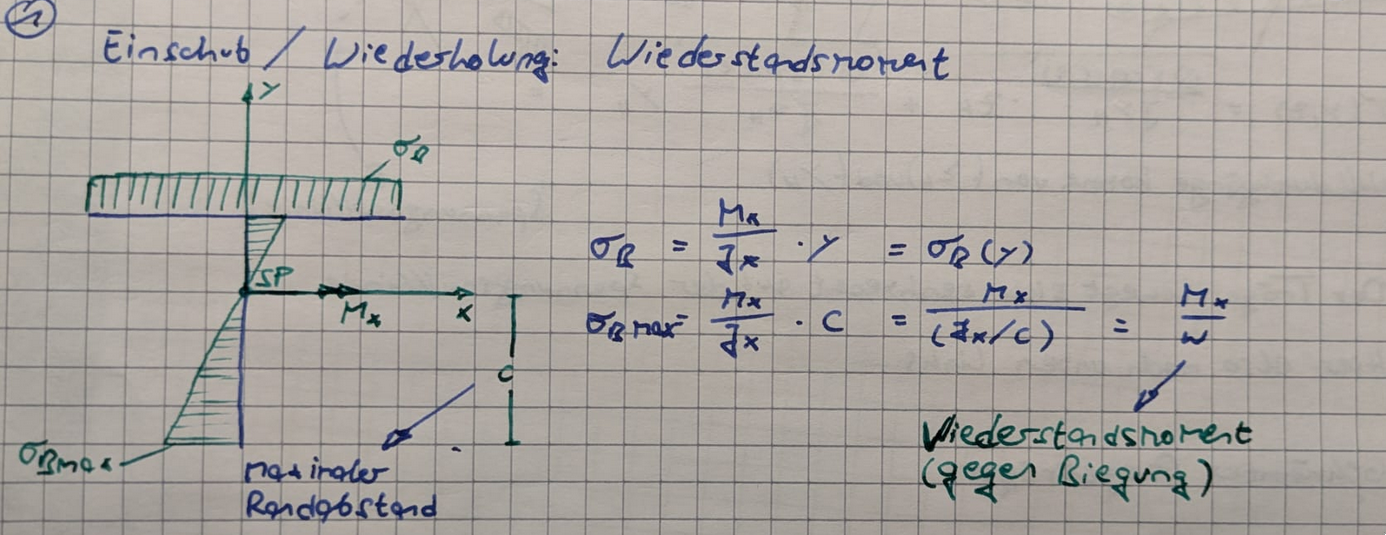 1
Einschub / Wiederholung: Wiederstandsmoment
y
σB
SP
Mx
x
c
σBmax
maximaler
Randabstand
σB = Mx/Jx · y = σB(y)
σBmax = Mx/Jx · c = Mx/(Jx/c) = Mx/w
Wiederstandsmoment
(gegen Biegung)